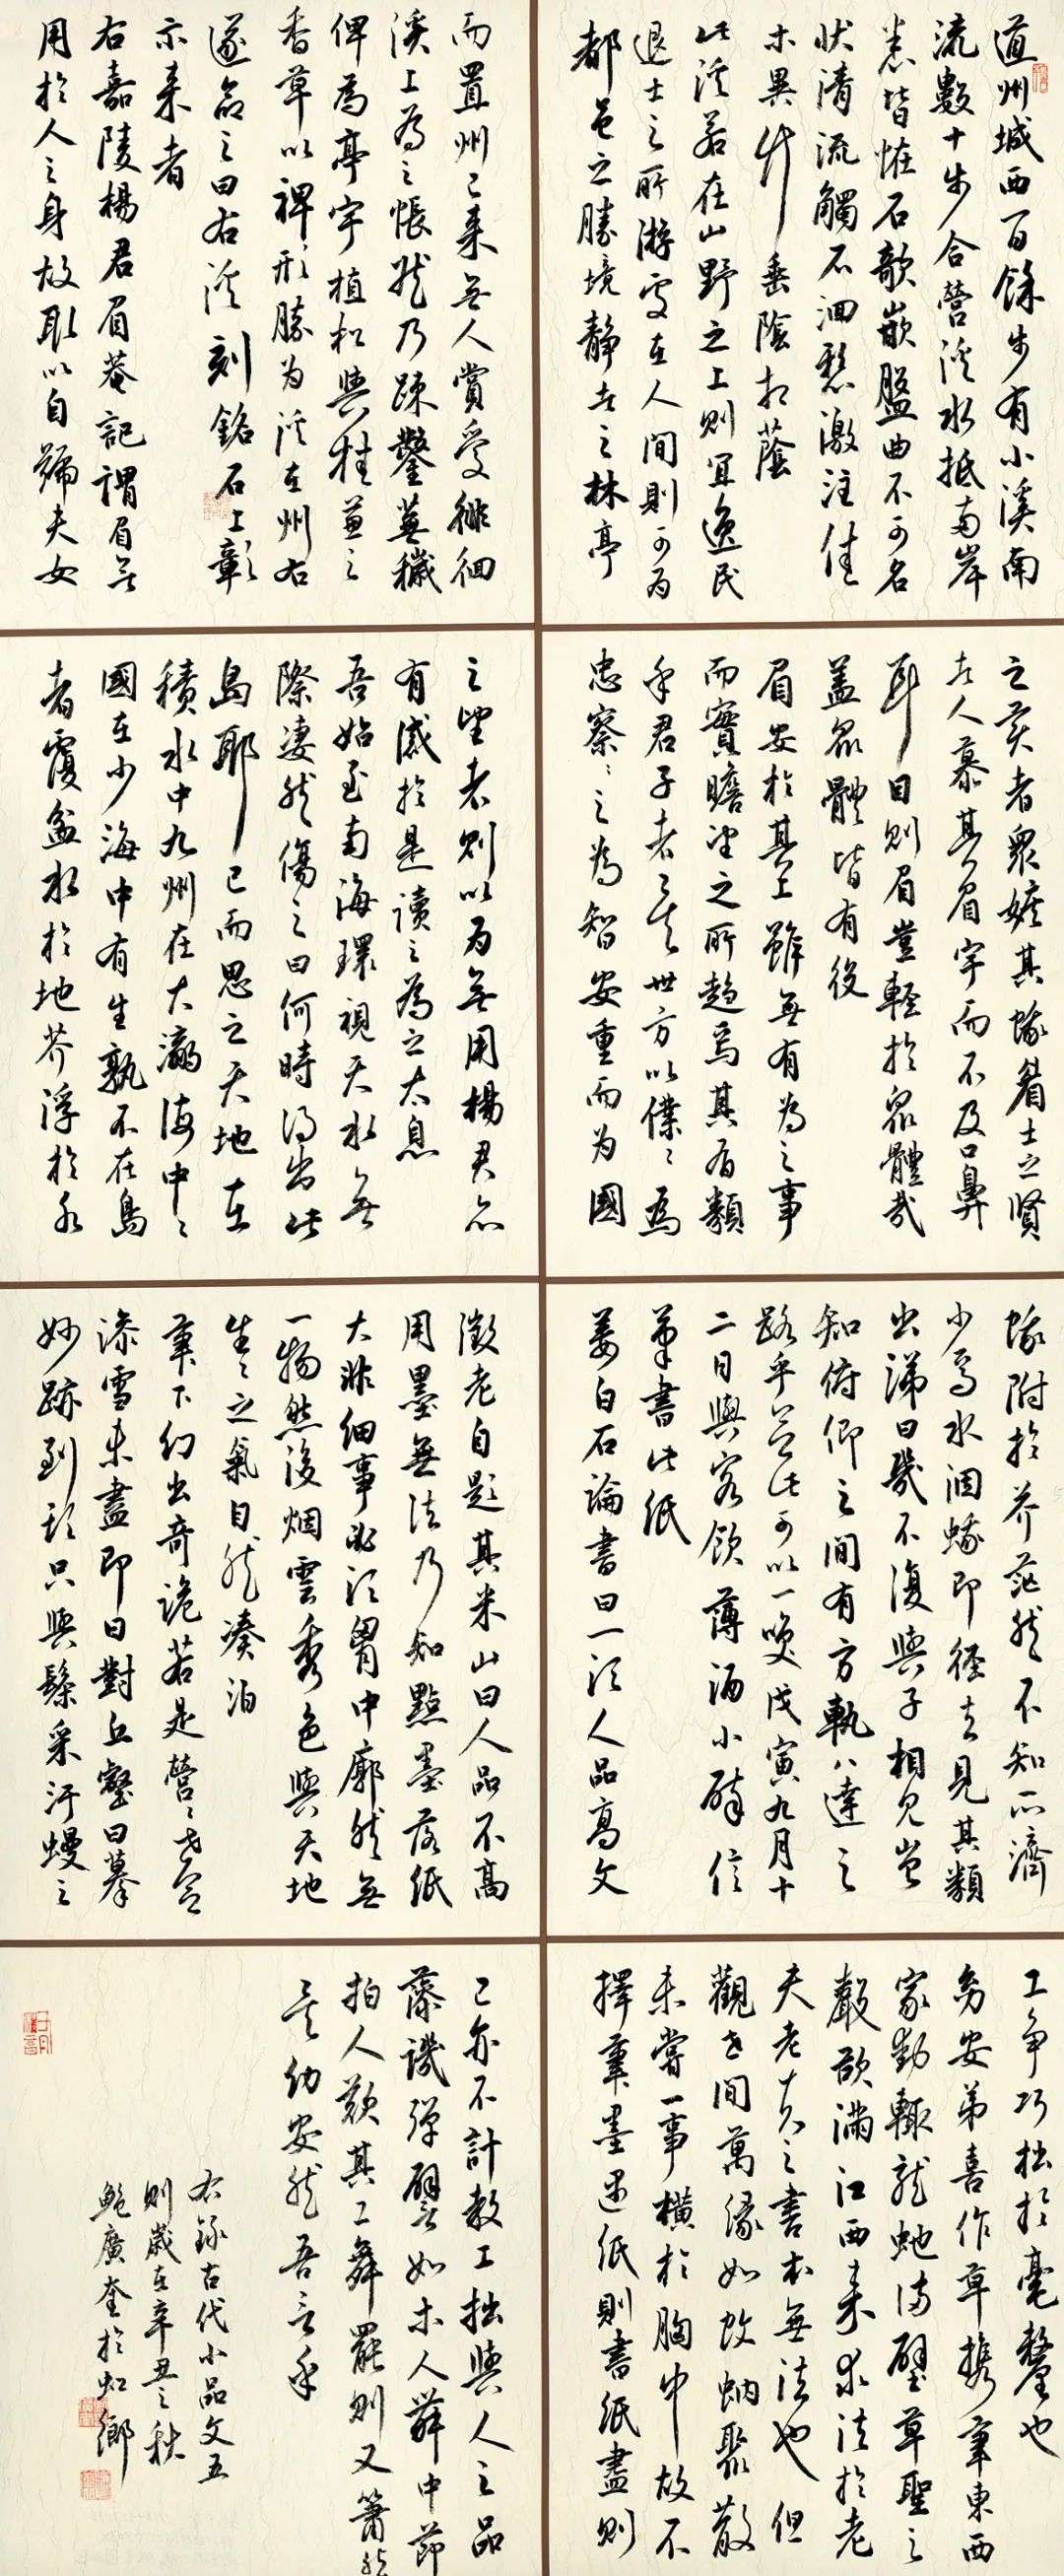 道州城西百餘步有小溪南
流數十步合營溪水抵兩岸
悉皆怪石欹嵌盤曲不可名
狀清流觸石洄懸激注佳
木異竹垂陰相蔭
此溪若在山野之上則宜逸民
退士之所游處在人間則可為
都邑之勝境靜者之林亭
而置州已來無人賞愛徘徊
溪上為之悵然乃疎鑿蕪穢
俾為亭宇植松與桂兼之
香草以裨形勝為溪在州右
遂命之曰右溪刻銘石上彰
示來者
右嘉陵楊君眉菴記謂眉無
用於人之身故取以自號夫女
之美者眾嫉其蛾眉士之賢
者人慕其眉宇而不及口鼻
耳目則眉豈輕於眾體哉
蓋眾體皆有役
眉安於其上雖無有為之事
而實瞻望之所趨焉其有類
乎君子者矣世方以僕僕為
忠察察之為智安重而为國
之望者則以为無用楊君亦
有感於是讀之為之太息
吾始至南海環視天水無
際凄然傷之曰何時得出此
島耶已而思之天地在
積水中九州在大瀛海中中
國在少海中有生孰不在島
者覆盆水於地芥浮於水
蟻附於芥茫然不知所濟
少焉水涸蟻即徑去見其類
出涕曰幾不復與子相見豈
知俯仰之間有方軌八達之
路乎念此可以一笑戊寅九月十
二日與客飲薄酒小醉信
筆書此紙
姜白石論書曰一須人品高文
徵老自題其米山曰人品不高
用墨無法乃知點墨落紙
大非細事必須胷中廓然無
一物然後烟雲秀色與天地
生生之氣自然湊泊
筆下幻出奇詭若是營營世念
澡雪未盡即日對丘壑日摹
妙跡到頭只與髹采汙墁之
工爭巧拙於毫釐也
幼安弟喜作草攜筆東西
家動輒龍虵滿壁草聖之
聲欲滿江西來求法於老
夫老夫之書本無法也但
觀世間萬緣如蚊蚋聚散
未嘗一事橫於胸中故不
擇筆墨遇紙則書紙盡則
已亦不計較工拙與人之品
藻譏彈譬如木人舞中節
拍人歎其工舞罷則又蕭然
矣幼安然吾言乎
右錄古代小品文五
則歲在辛丑之秋
鮑廣奎於虹鄉